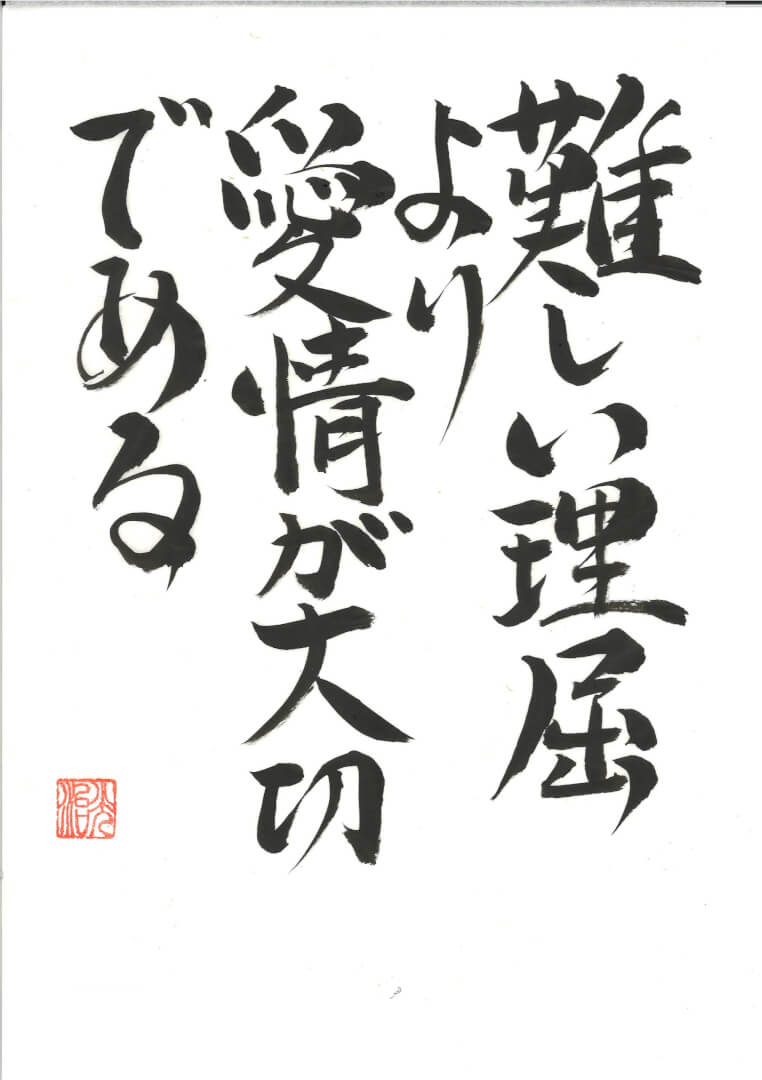 難しい理屈
より
愛情が大切
である